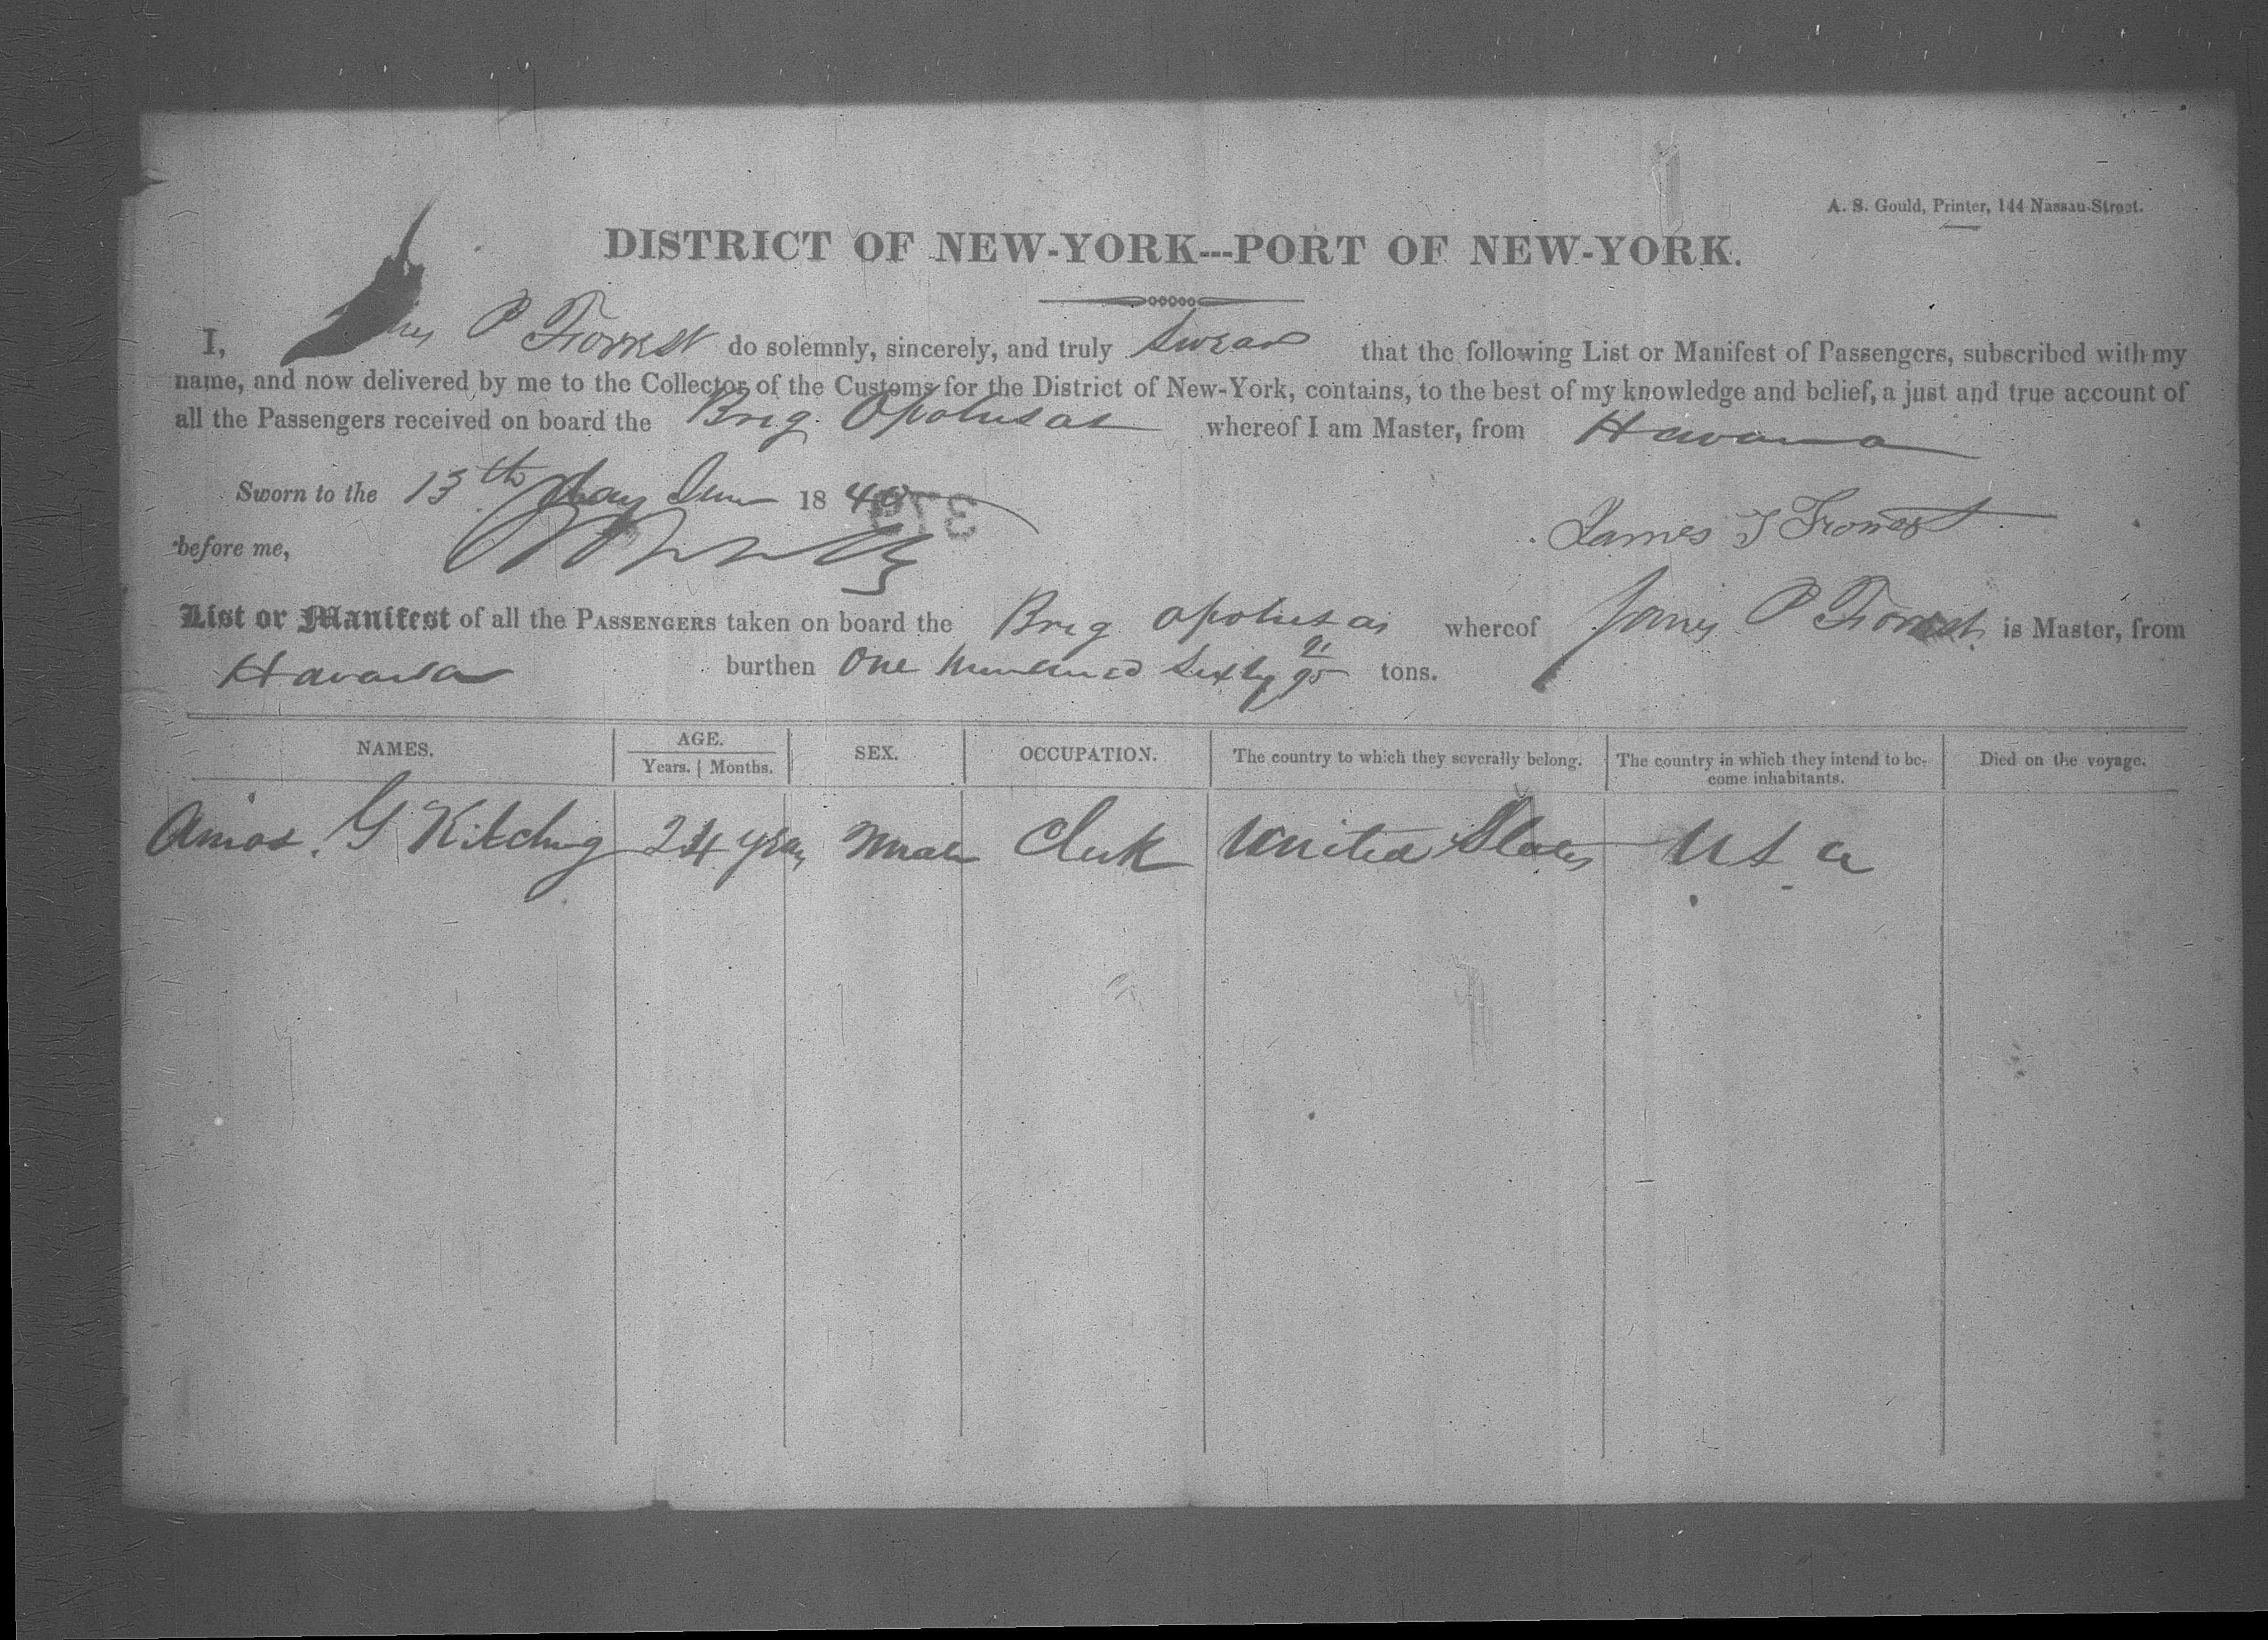 A. S. Gould, Printer, 144 Nassau-Street.
DISTRICT OF NEW-YORK---PORT OF NEW-YORK.
I, P Forrest do solemnly, sincerely, and truly Swear that the following List or Manifest of Passengers, subscribed with my
name, and now delivered by me to the Collector of the Customs for the District of New-York, contains, to the best of my knowledge and belief, a just and true account of
all the Passengers received on board the Brig whereof I am Master, from Havana
Sworn to the 13th day June 1840
before me,
James Forrest
List or Manifest of all the PASSENGERS taken on board the Brig whereof James P Forrest is Master, from
Havana burthen One hundred Sixty 91/95 tons.
NAMES. AGE. SEX. OCCUPATION. The country to which they severally belong. The country in which they intend to be- Died on the voyage.
Years. Months. come inhabitants.
Amos. G Kitching 24 years Male Clerk United States U S a